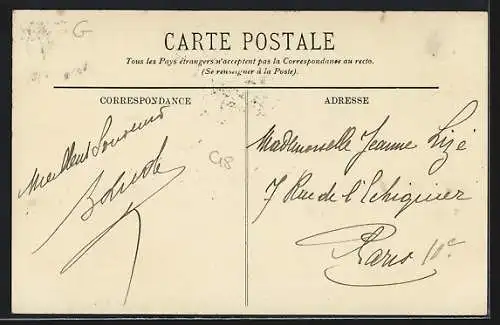 G
CARTE POSTALE
Tous les Pays étrangers n'acceptent pas la Correspondance au recto.
(Se renseigner à la Poste).
CORRESPONDANCE
Meilleurs Souvenirs
ADRESSE
G18
Mademoiselle Jeanne Lizé
7 Rue de l'Echiquier
Paris 10e